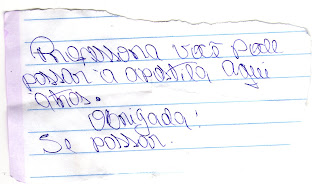 Professora você pode
passar a apostila, aqui
atras.
Obrigada!
Se passar.